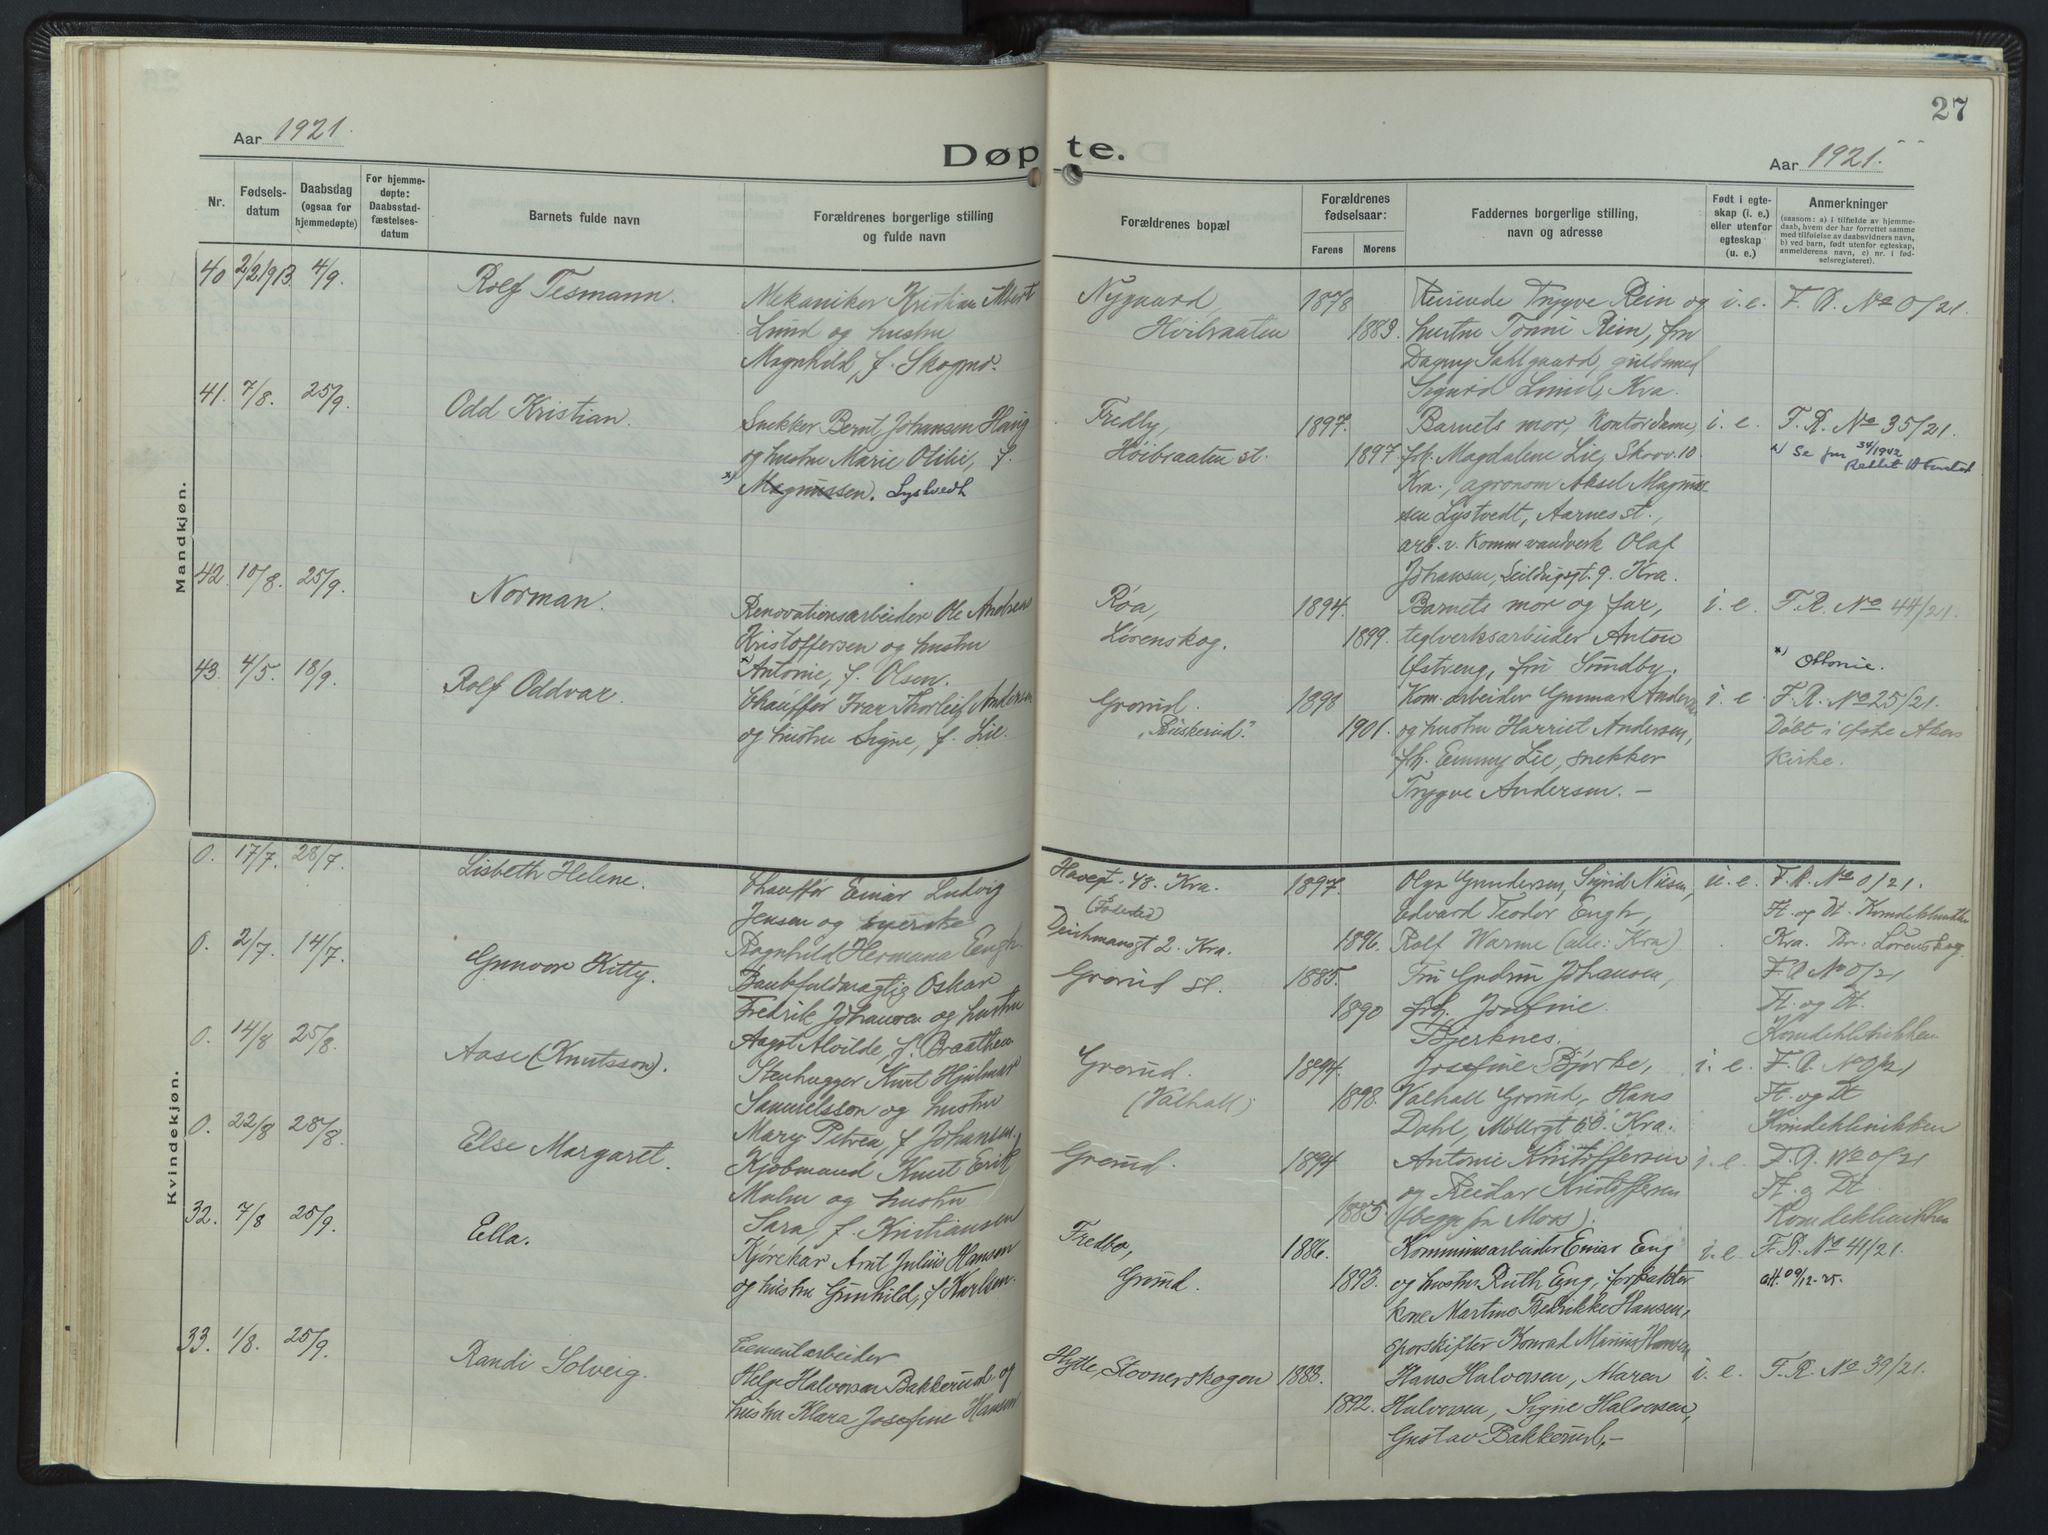 27
Aar 1921.
Døpte.
Aar 1921.
Nr.
Fødsels-
datum
Daabsdag
(ogsaa for
hjemmedøpte)
For hjemme-
døpte:
Daabsstad-
fæstelses-
datum
Barnets fulde navn
Forældrenes borgerlige stilling
og fulde navn
Forældrenes bopæl
Forældrenes
fødselsaar:
Farens
Morens
Faddernes borgerlige stilling,
navn og adresse
Født i egte-
skap (i. e.)
eller utenfor
egteskap
(u. e.)
Anmerkninger
(saasom: a) i tilfælde av hjemme-
daab, hvem der har forrettet samme
med tilføielse av daabsvidners navn,
b) ved barn, født utenfor egteskap,
anmelderens navn, c) nr. i fød-
selsregisteret).
Mandkjøn.
40 2/2 1913. 4/9 Rolf Tesmann.
Mekaniker Kristian Albert
Lund og hustru
Magnhild, f. Skogmo.
Nygaard,
Høibraaten
1878
1883.
Reisende Trygve Rein og
hustru Tonni Rein, fru
Dagny Sahlgaard, guldsmed
Sigurd Lund, Kra.
i. e.
F. R. No 0/21.
41. 7/8. 25/9. Odd Kristian.
Snekker Bernt Johansen Haug
og hustru Marie Otilie, f.
*) Magnussen. Lystvedt
Fredly,
Høibraaten st.
1897.
1897
Barnets mor, kontordame,
frk. Magdalene Lie, Skovv. 10
Kra., agronom Aksel Magnus-
sen Lystvedt, Aarnes st.,
arb. v. Komm. vandverk Olaf
Johansen, Seildugsgt. 9. Kra.
i. e.
F. R. No 35/21.
*) Se jnr 34/1942
42. 10/8. 25/9. Norman.
Renovationsarbeider Ole Andreas
Kristoffersen og hustru
*) Antonie, f. Olsen.
Røa,
Lørenskog.
1894.
1899.
Barnets mor og far,
teglverksarbeider Anton
Østreng, fru Sundby.
i. e.
F. R. No 44/21.
*) Ottonie.
43. 4/5. 18/9. Rolf Oddvar.
Chauffør Ivar Thorleif Andersen
og hustru Signe, f. Lie.
Grorud.
"Buskerud".
1898
1901.
Kom. arbeider Gunnar Andersen
og hustru Harriet Andersen,
frk. Emmy Lie, snekker
Trygve Andersen. –
i. e.
F. R. No 25/21.
Døbt i Østre Akers
Kirke.
Kvindekjøn.
0. 17/7. 28/7. Lisbeth Helene.
Chauffør Einar Ludvig
Jensen og syerske
Ragnhild Hermana Engh.
Havegt. 48. Kra.
Deichmansgt 2. Kra.
1897.
1896.
Olga Gundersen, Sigrid Nilsen,
Edvard Teodor Engh,
Rolf Warme (alle: Kra)
u. e.
F. R. No 0/21.
Ft. og Dt. Kvindeklinikken
Kra. Br: Lørenskog
0. 2/7. 14/7. Gunvor Kitty.
Bankfuldmægtig Oskar
Fredrik Johansen og hustru
Aagot Alvilde, f. Braathen
Grorud st.
1885.
1890
Fru Gudrun Johansen,
frk. Josefine
Bjerknes.
F. R. No 0/21
Ft. og Dt.
Kvindeklinikken
0. 14/8 25/8. Aase (Knutsson).
Stenhugger Knut Hjalmar
Samuelsson og hustru
Mary Petrea, f. Johansen.
Grorud.
(Valhall)
1894.
1898.
Josefine Bjørke,
Valhall Grorud, Hans
Dahl, Møllergt 60. Kra.
i. e.
F. R. No 0/21
Ft. og Dt
Kvindeklinikken
0. 22/8 28/8. Else Margaret.
Kjøbmand Knut Erik
Malm og hustru
Sara, f. Kristiansen
Grorud.
1894
1885.
Antonie Kristoffersen
og Reidar Kristoffersen
(begge fra Moss).
i. e.
F. R. No 0/21
Ft. og Dt.
Kvindeklinikken
32. 7/8 25/9. Ella.
Kjørekar Arnt Julius Hansen
og hustru Gunhild, f. Karlsen.
Fredbo,
Grorud.
1886.
1893.
Kommunearbeider Einar Eng
og hustru Ruth Eng, forpakter
kone Martine Fredrikke Hansen,
sporskifter Konrad Marius Hansen
i. e.
F. R. No 41/21.
33. 1/8. 25/9. Randi Solveig.
Cementarbeider
Helge Halvorsen Bakkerud og
hustru Klara Josefine Hansen
Hytte, Stovnerskogen
1888.
1892.
Hans Halvorsen, Maren
Halvorsen, Signe Halvorsen,
Gustav Bakkerud. –
i. e.
F. R. No 39/21.